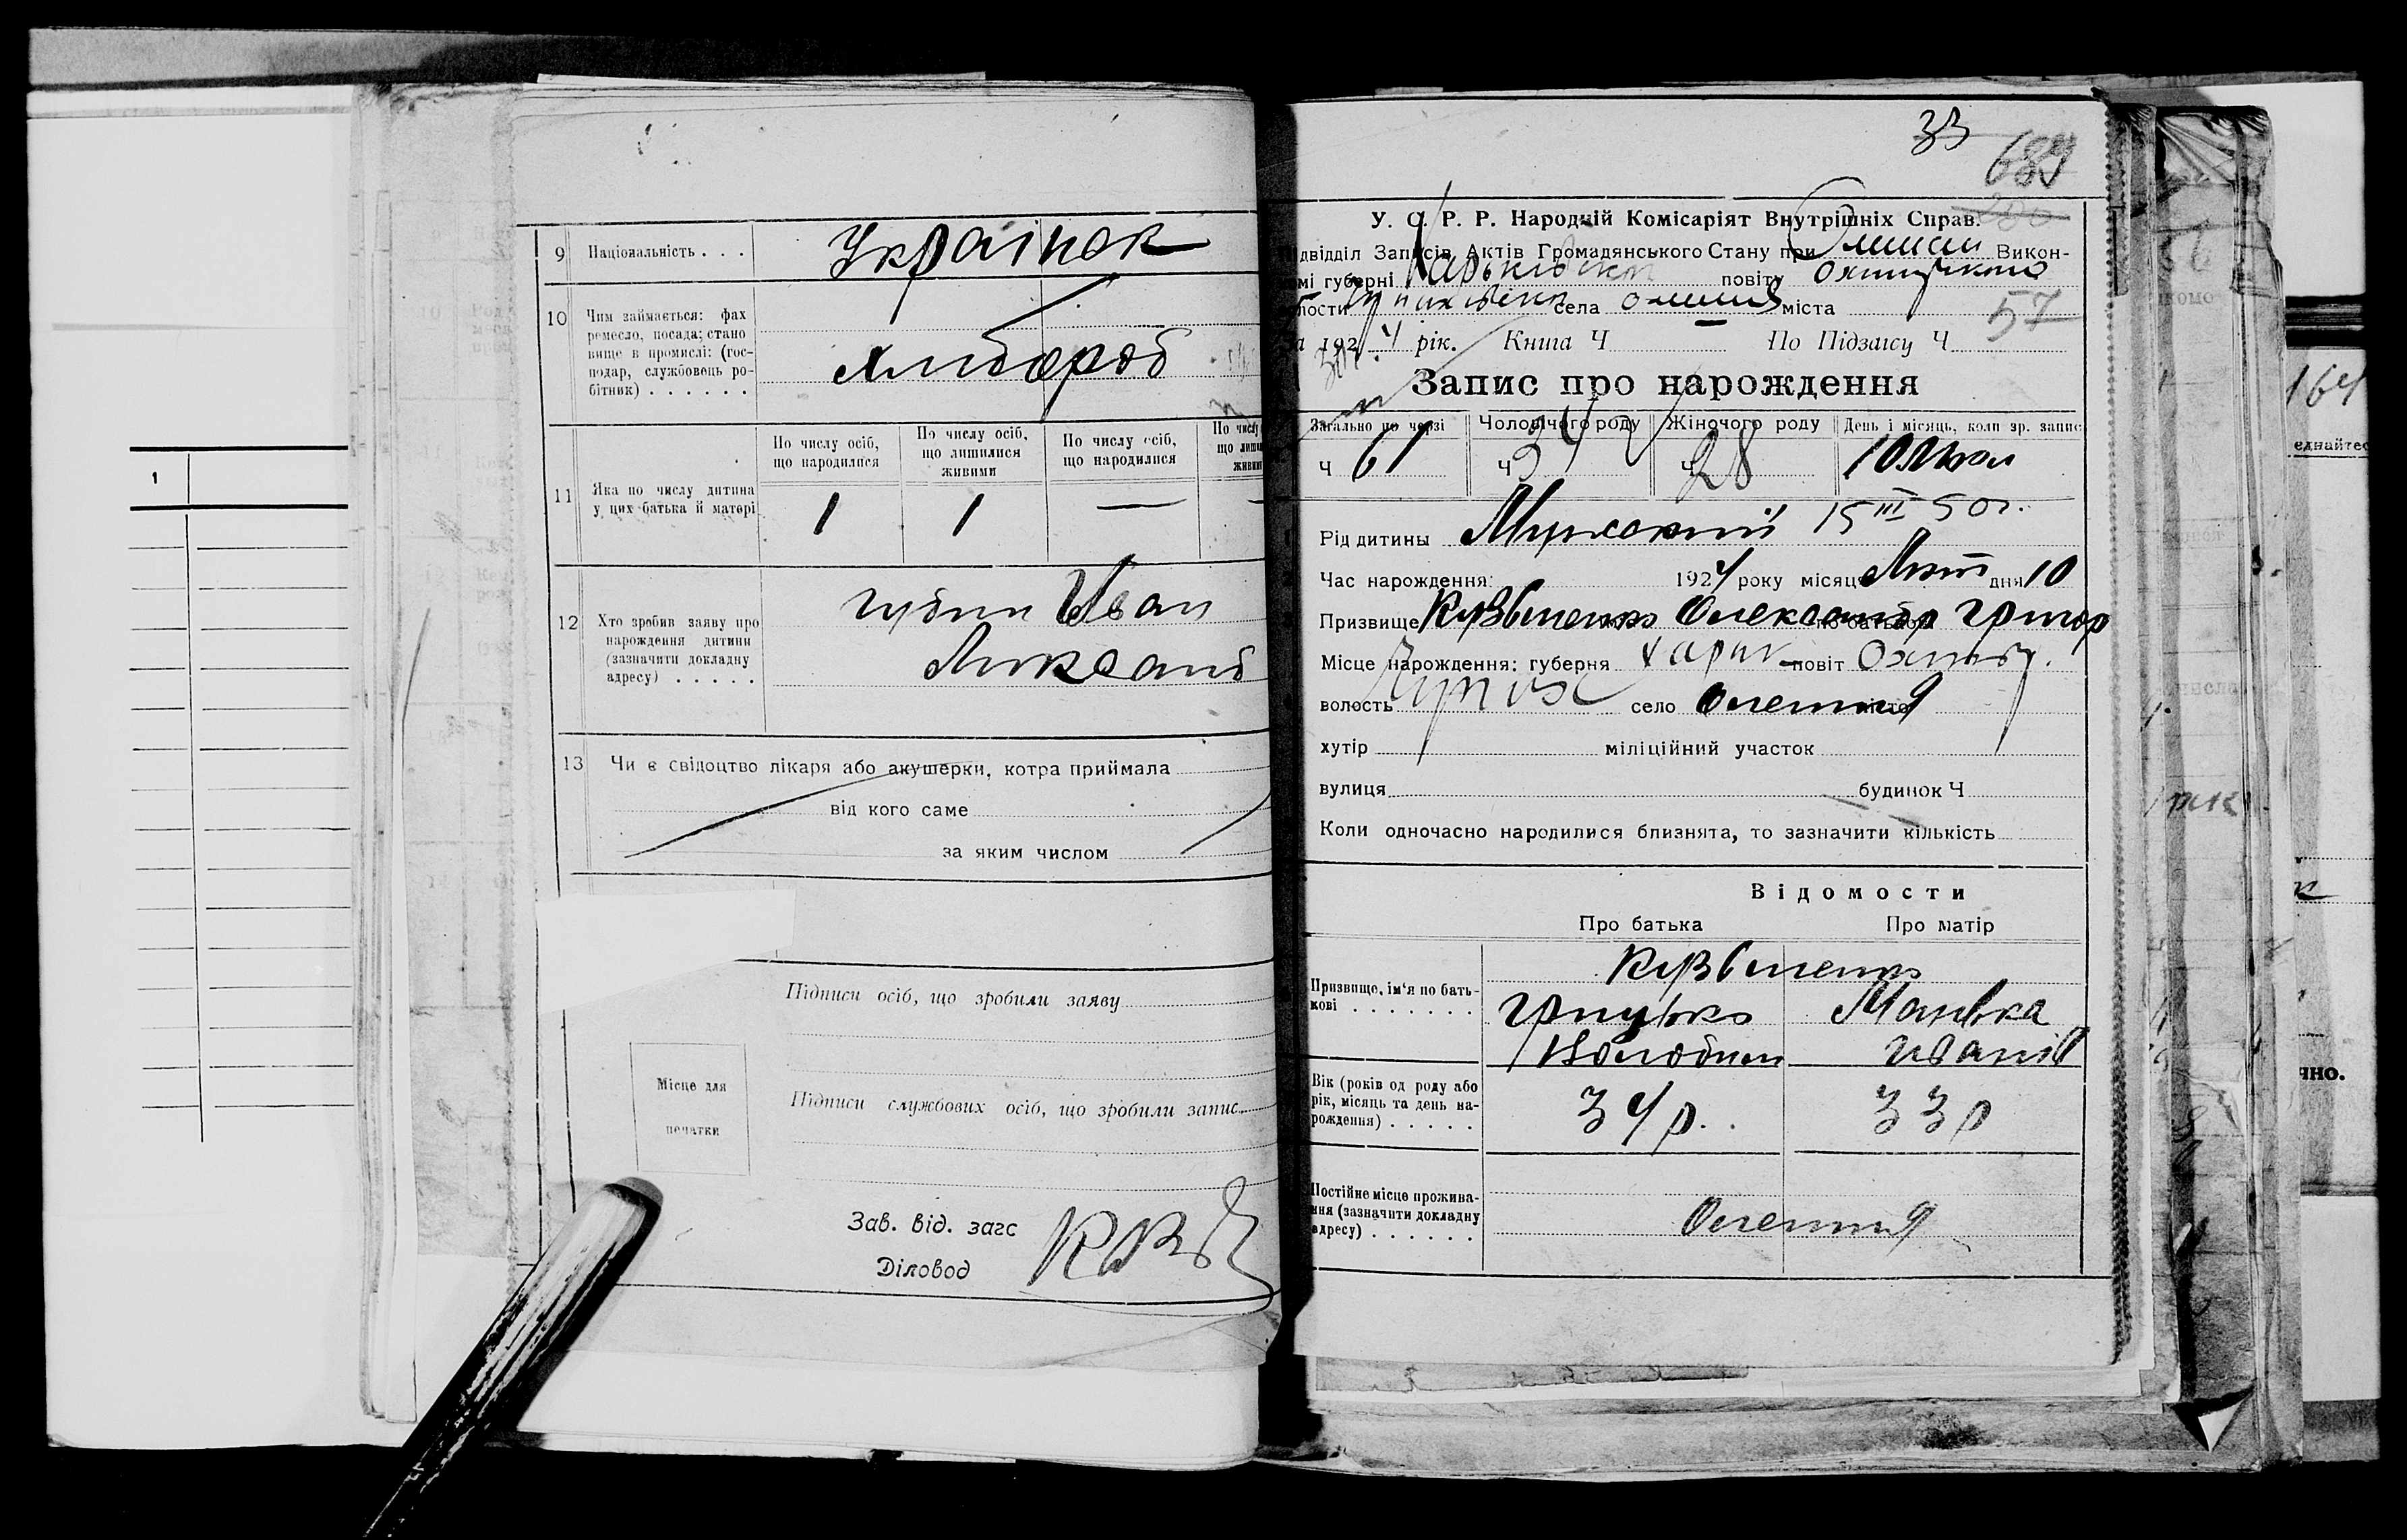 9 Національність . . .
Українск
10 Чим займається: фах
ремесло, посада; стано
вище в промислі: (гос-
подар, службовець ро-
бітник) . . . . . .
Хлибороб
11 Яка по числу дитина
у цих батька й матері
По числу осіб,
що народилися
По числу осіб,
що лишилися
живими
По числу осіб,
що народилися
1 1 —
12 Хто зробив заяву про
нарождення дитини
(зазначити докладну
адресу) . . . . .
Иван
13 Чи є свідоцтво лікаря або акушерки, котра приймала
від кого саме
за яким числом
Підписи осіб, що зробили заяву
Місце для
печатки
Підписи службових осіб, що зробили запис
Зав. від. загс
Діловод
33
689
У. С. Р. Р. Народній Комісаріят Внутрішніх Справ.
Записів Актів Громадянського Стану при Викон-
губерні Харьківскої повіту
села міста
57
192 4 рік. Книга Ч — По Підзагсу Ч
Запис про нарождення
Загально по черзі Чоловічого роду Жіночого роду День і місяць, коли зр. запис
Ч 61 Ч 34 Ч 28 10
Рід дитины Мужеский 15 III 50 г.
Час нарождення: 1924 року місяць Лют дня 10
Призвище Кузьменко Олександр Григор
Місце нарождення: губерня Харк повіт
волость село Олешня
хутір міліційний участок
вулиця будинок Ч
Коли одночасно народилися близнята, то зазначити кількість
Відомости
Про батька Про матір
Призвище, ім'я по бать-
кові . . . . . . .
Кузьменко
Грицько Манька
Володим Иванів
Вік (років од роду або
рік, місяць та день на-
рождення) . . . . .
34 р. 33 р
Постійне місце прожива-
ння (зазначити докладну
адресу) . . . . . .
Олешня
164
1